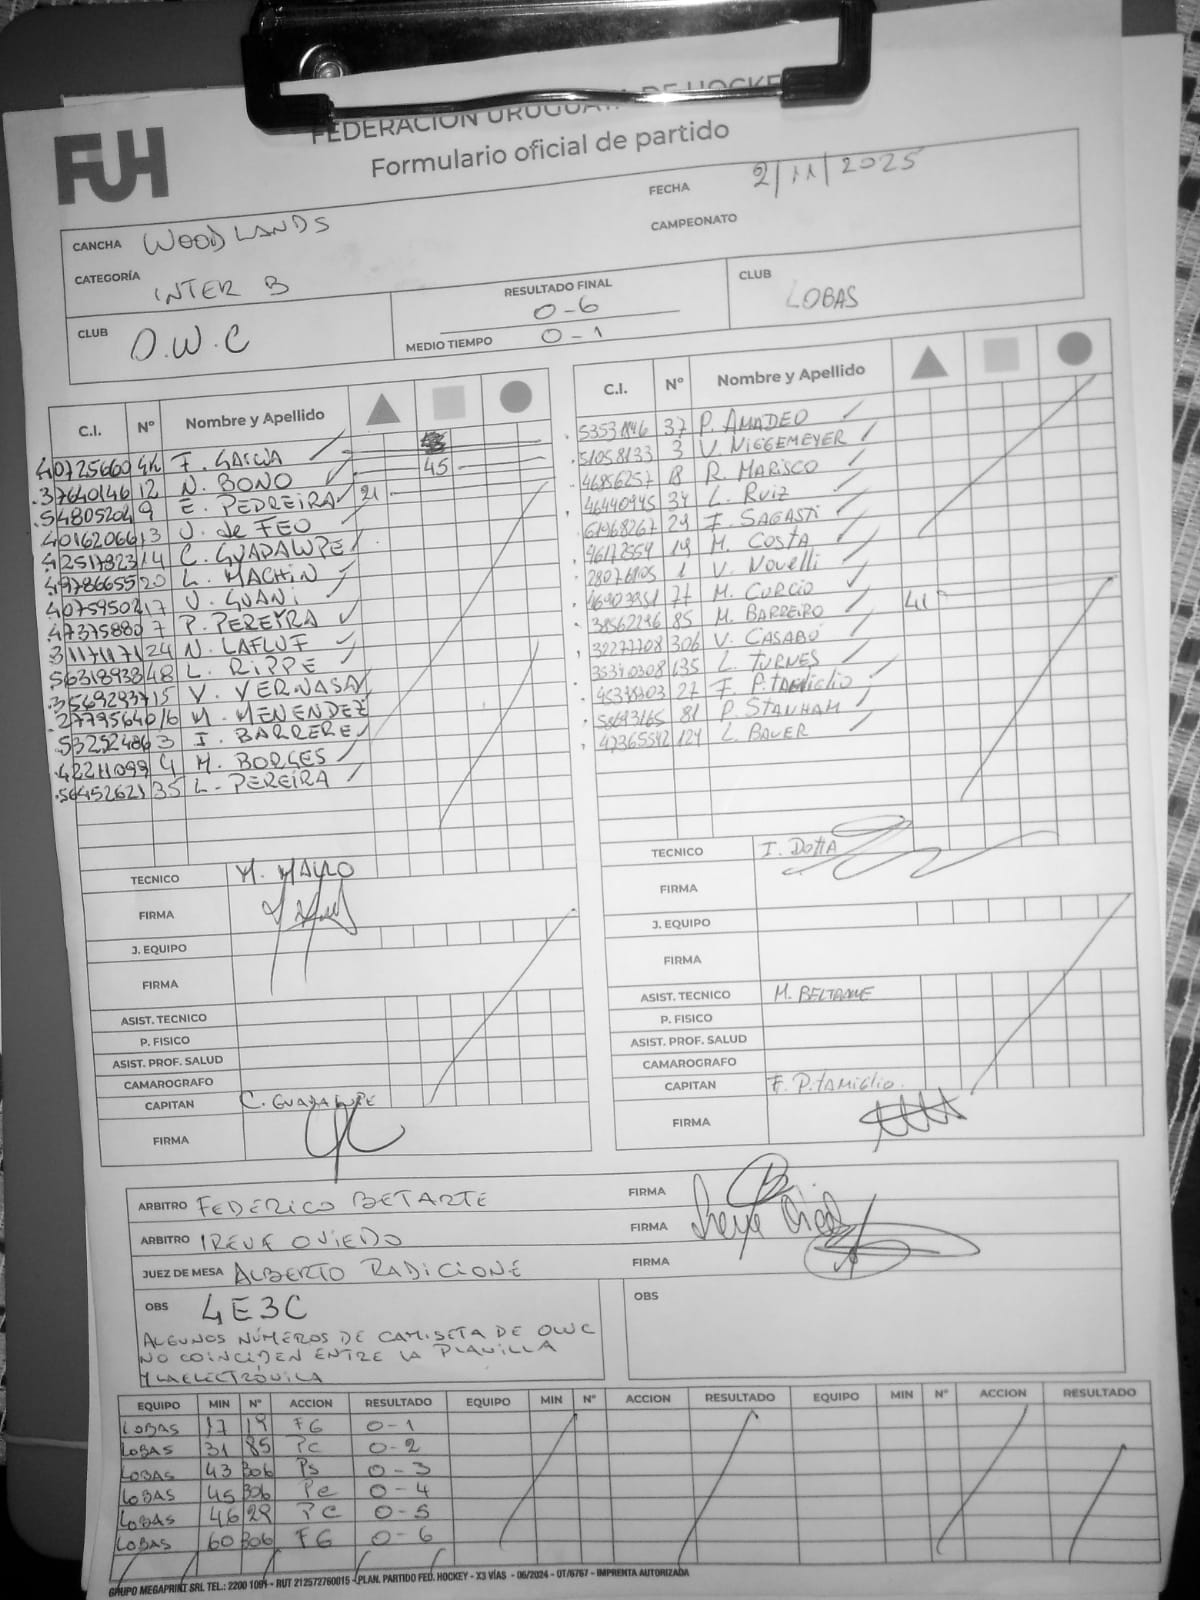 FUH
FEDERACIÓN URUGUAYA DE HOCKE
Formulario oficial de partido
CANCHA WOODLANDS
FECHA 2/11/2025
CATEGORÍA INTER B
CAMPEONATO
CLUB O.W.C
RESULTADO FINAL 0-6
MEDIO TIEMPO 0-1
CLUB LOBAS
C.I. Nº Nombre y Apellido
F. GARCIA
12 N. BONO 45
9 E. PEDREIRA 21
J. de FEO
14 C. GUADALUPE
20 L. MACHIN
17 J. GUANI
7 P. PEREYRA
24 N. LAFLUF
48 L. RIPPE
15 V. VERNASA
16 M. MENENDEZ
3 I. BARRERE
4 M. BORGES
56452621 35 L. PEREIRA
C.I. Nº Nombre y Apellido
37 P. AMADEO
51058133 3 V. NIGGEMEYER
46856257 18 R. MARISCO
34 L. RUIZ
61968267 29 F. SAGASTI
19 M. COSTA
1 V. Novelli
77 M. CURCIO
85 M. BARREIRO 41
306 V. CASABÓ
135 L. TURNES
27 F. P.TAMIGLIO
81 P. STANHAM
47365542 124 L. BAUER
TECNICO M. MAULO
FIRMA
J. EQUIPO
FIRMA
ASIST. TECNICO
P. FISICO
ASIST. PROF. SALUD
CAMAROGRAFO
CAPITAN C. GUADALUPE
FIRMA
TECNICO I. DOTTA
FIRMA
J. EQUIPO
FIRMA
ASIST. TECNICO M. BELTRAME
P. FISICO
ASIST. PROF. SALUD
CAMAROGRAFO
CAPITAN F. P.TAMIGLIO.
FIRMA
ARBITRO FEDERICO BETARTE FIRMA
ARBITRO IRENE OVIEDO FIRMA
JUEZ DE MESA ALBERTO RADICIONE FIRMA
OBS 4E3C
ALGUNOS NÚMEROS DE CAMISETA DE OWC
NO COINCIDEN ENTRE LA PLANILLA
Y LA ELECTRÓNICA
OBS
EQUIPO MIN Nº ACCION RESULTADO EQUIPO MIN Nº ACCION RESULTADO EQUIPO MIN Nº ACCION RESULTADO
LOBAS 17 19 FG 0-1
LOBAS 31 85 PC 0-2
LOBAS 43 306 PS 0-3
LOBAS 45 306 PC 0-4
LOBAS 46 29 PC 0-5
LOBAS 60 306 FG 0-6
GRUPO MEGAPRINT SRL TEL.: 2200 1091 - RUT 212572760015 - PLAN. PARTIDO FED. HOCKEY - X3 VÍAS - 06/2024 - OT/6767 - IMPRENTA AUTORIZADA